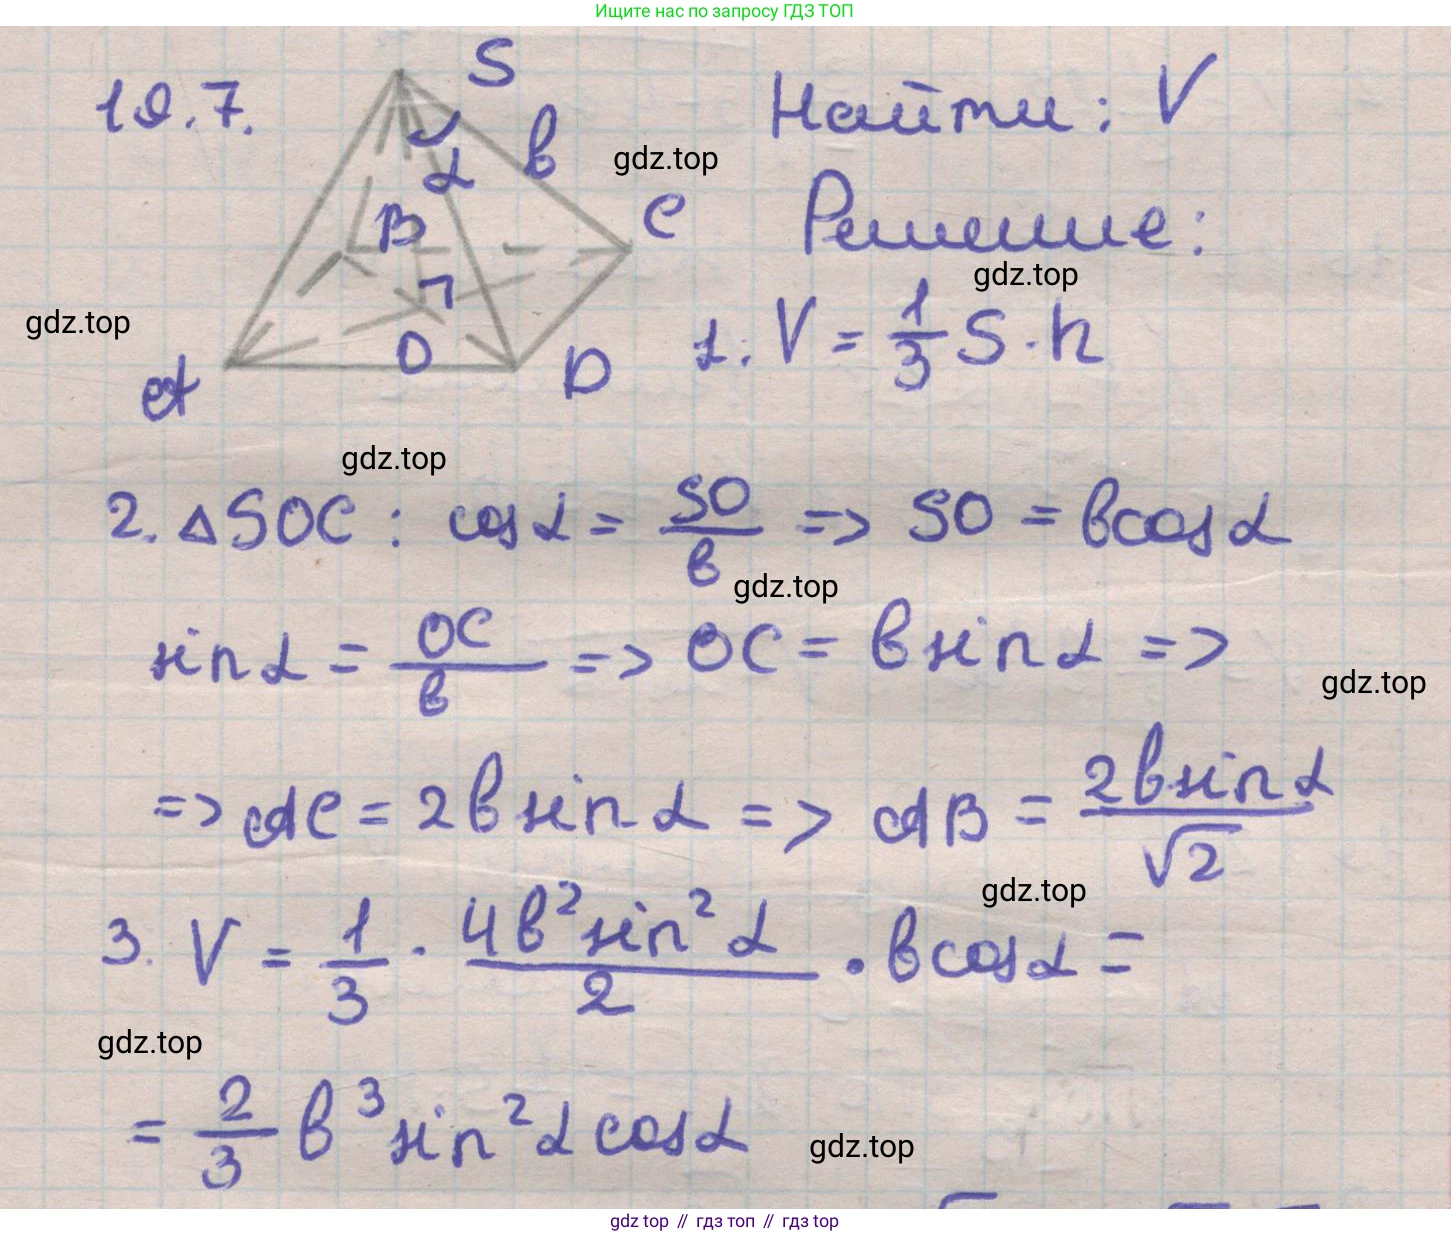 Ищите нас по запросу ГДЗ ТОП
19.7.
S
Найти: V
в
gdz.top
α
C
B
Решение:
gdz.top
gdz.top
O
A
D
1. V = 1/3 S · h
gdz.top
2. △SOC : cos α = SO/в => SO = в cos α
gdz.top
sin α = OC/в => OC = в sin α =>
gdz.top
=> AC = 2в sin α => AB = 2в sin α/√2
gdz.top
3. V = 1/3 · 4в² sin² α/2 · в cos α =
gdz.top
= 2/3 в³ sin² α cos α
gdz.top
gdz top // гдз топ // гдз top